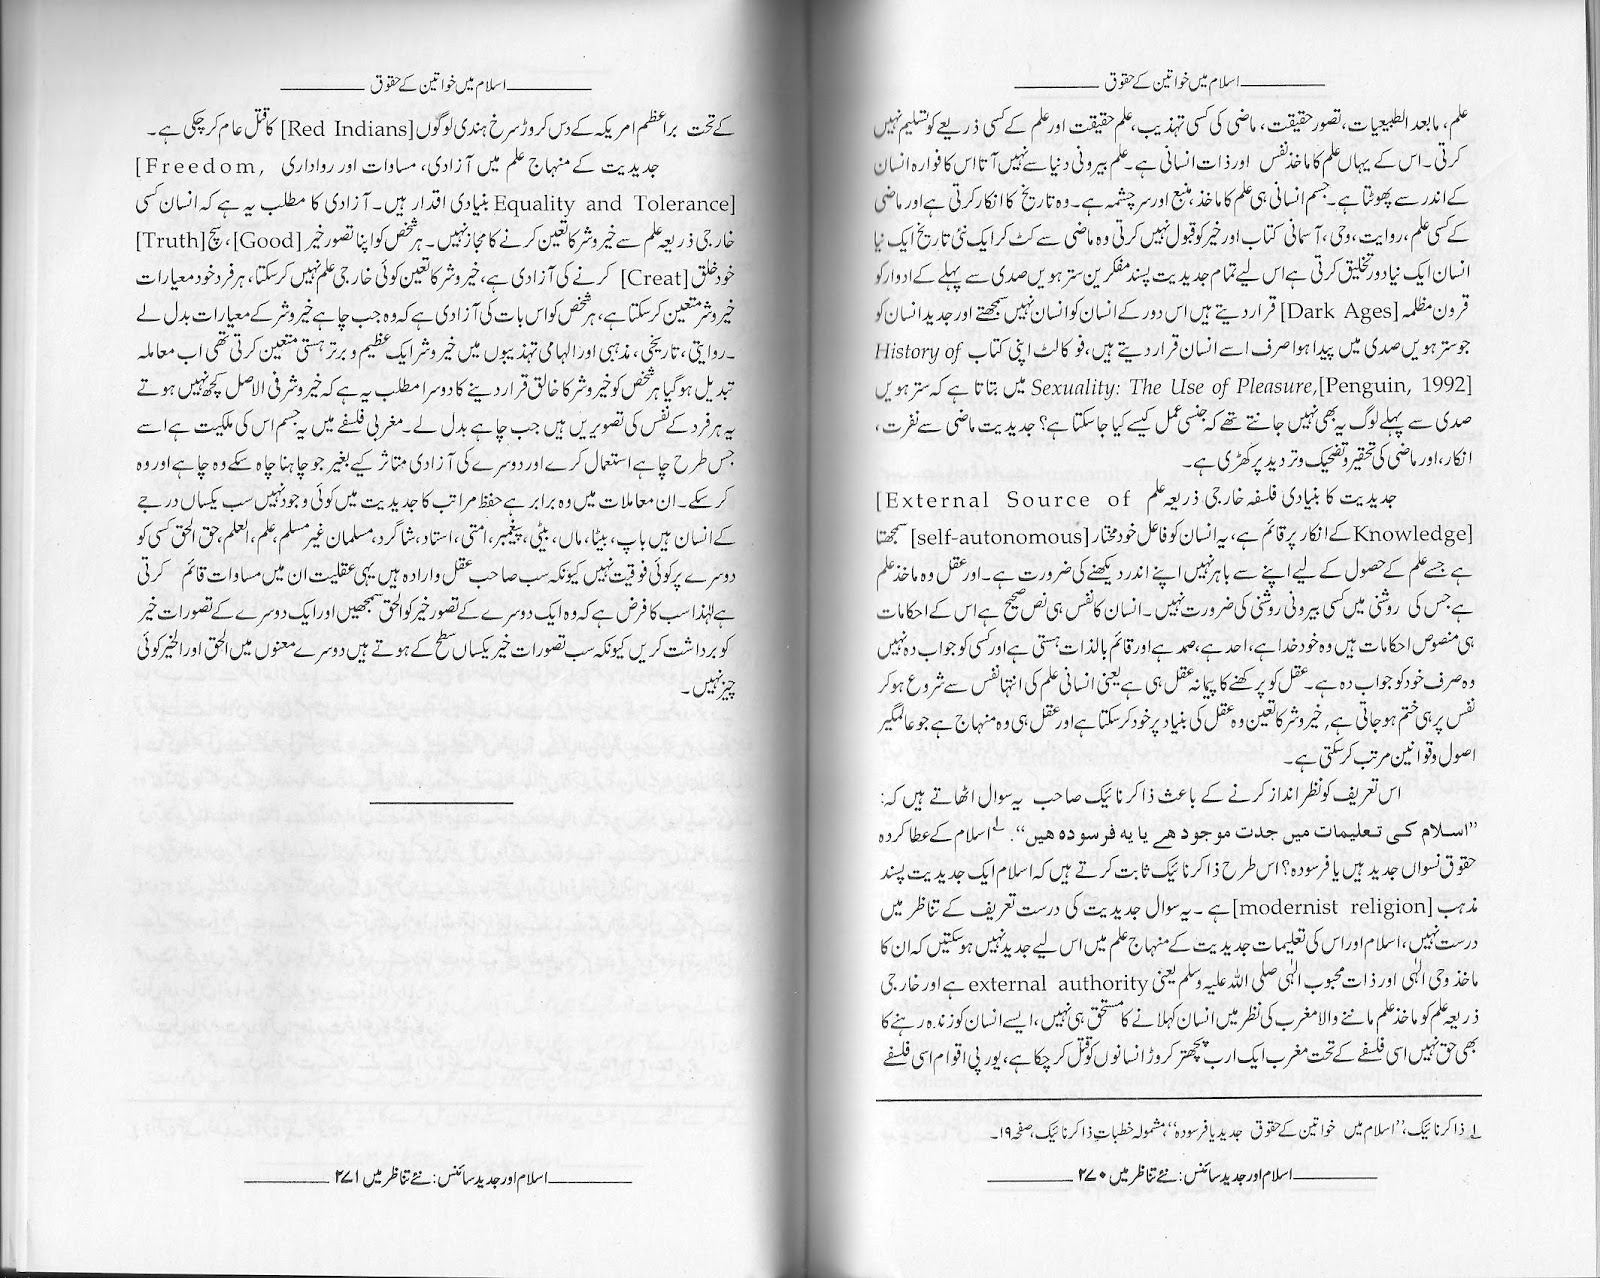 اسلام میں خواتین کے حقوق
علم، مابعد الطبیعیات، تصور حقیقت، ماضی کی کسی تہذیب، علم حقیقت اور علم کے کسی ذریعے کو تسلیم نہیں
کرتی۔ اس کے یہاں علم کا ماخذ نفس اور ذات انسانی ہے۔ علم بیرونی دنیا سے نہیں آتا اس کا فوارہ انسان
کے اندر سے پھوٹتا ہے۔ جسم انسانی ہی علم کا ماخذ، منبع اور سرچشمہ ہے۔ وہ تاریخ کا انکار کرتی ہے اور ماضی
کے کسی علم، روایت، وحی، آسمانی کتاب اور خیر کو قبول نہیں کرتی وہ ماضی سے کٹ کر ایک نئی تاریخ ایک نیا
انسان ایک نیا دور تخلیق کرتی ہے اس لیے تمام جدیدیت پسند مفکرین سترہویں صدی سے پہلے کے ادوار کو
قرون مظلمہ [Dark Ages] قرار دیتے ہیں اس دور کے انسان کو انسان نہیں سمجھتے اور جدید انسان کو
جو سترہویں صدی میں پیدا ہوا صرف اسے انسان قرار دیتے ہیں، فوکالٹ اپنی کتاب History of
Sexuality: The Use of Pleasure,[Penguin, 1992] میں بتاتا ہے کہ سترہویں
صدی سے پہلے لوگ یہ بھی نہیں جانتے تھے کہ جنسی عمل کیسے کیا جاسکتا ہے؟ جدیدیت ماضی سے نفرت،
انکار، اور ماضی کی تحقیر و تضحیک و تردید پر کھڑی ہے۔
جدیدیت کا بنیادی فلسفہ خارجی ذریعہ علم [External Source of
Knowledge] کے انکار پر قائم ہے، یہ انسان کو فاعل خود مختار [self-autonomous] سمجھتا
ہے جسے علم کے حصول کے لیے اپنے سے باہر نہیں اپنے اندر دیکھنے کی ضرورت ہے۔ اور عقل وہ ماخذ علم
ہے جس کی روشنی میں کسی بیرونی روشنی کی ضرورت نہیں۔ انسان کا نفس ہی نص صحیح ہے اس کے احکامات
ہی منصوص احکامات ہیں وہ خود خدا ہے، احد ہے، صمد ہے اور قائم بالذات ہستی ہے اور کسی کو جواب دہ نہیں
وہ صرف خود کو جواب دہ ہے۔ عقل کو پرکھنے کا پیمانہ عقل ہی ہے یعنی انسانی علم کی انتہا نفس سے شروع ہو کر
نفس پر ہی ختم ہو جاتی ہے، خیر و شر کا تعین وہ عقل کی بنیاد پر خود کر سکتا ہے اور عقل ہی وہ منہاج ہے جو عالمگیر
اصول و قوانین مرتب کرسکتی ہے۔
اس تعریف کو نظر انداز کرنے کے باعث ذاکر نائیک صاحب یہ سوال اٹھاتے ہیں کہ:
"اسلام کی تعلیمات میں جدت موجود ہے یا یہ فرسودہ ہیں"۔ ۱؎ اسلام کے عطا کردہ
حقوق نسواں جدید ہیں یا فرسودہ؟ اس طرح ذاکر نائیک ثابت کرتے ہیں کہ اسلام ایک جدیدیت پسند
مذہب [modernist religion] ہے۔ یہ سوال جدیدیت کی درست تعریف کے تناظر میں
درست نہیں، اسلام اور اس کی تعلیمات جدیدیت کے منہاج علم میں اس لیے جدید نہیں ہوسکتیں کہ ان کا
ماخذ وحی الٰہی اور ذات محبوب الٰہی صلی اللہ علیہ وسلم یعنی external authority ہے اور خارجی
ذریعہ علم کو ماخذ علم ماننے والا مغرب کی نظر میں انسان کہلانے کا مستحق ہی نہیں، ایسے انسان کو زندہ رہنے کا
بھی حق نہیں اسی فلسفے کے تحت مغرب ایک ارب پچھتر کروڑ انسانوں کو قتل کر چکا ہے، یورپی اقوام اسی فلسفے
۱؎ ذاکر نائیک، "اسلام میں خواتین کے حقوق جدید یا فرسودہ"، مشمولہ خطبات ذاکر نائیک، صفحہ ۱۹۔
اسلام اور جدید سائنس: نئے تناظر میں ۲۷۰
اسلام میں خواتین کے حقوق
کے تحت براعظم امریکہ کے دس کروڑ سرخ ہندی لوگوں [Red Indians] کا قتل عام کر چکی ہے۔
جدیدیت کے منہاج علم میں آزادی، مساوات اور رواداری [Freedom,
Equality and Tolerance] بنیادی اقدار ہیں۔ آزادی کا مطلب یہ ہے کہ انسان کسی
خارجی ذریعہ علم سے خیر و شر کا تعین کرنے کا مجاز نہیں۔ ہر شخص کو اپنا تصور خیر [Good]، سچ [Truth]
خود خلق [Creat] کرنے کی آزادی ہے، خیر و شر کا تعین کوئی خارجی علم نہیں کرسکتا، ہر فرد خود معیارات
خیر و شر متعین کرسکتا ہے، ہر شخص کو اس بات کی آزادی ہے کہ وہ جب چاہے خیر و شر کے معیارات بدل لے
۔ روایتی، تاریخی، مذہبی اور الہامی تہذیبوں میں خیر و شر ایک عظیم و برتر ہستی متعین کرتی تھی اب معاملہ
تبدیل ہو گیا ہر شخص کو خیر و شر کا خالق قرار دینے کا دوسرا مطلب یہ ہے کہ خیر و شر فی الاصل کچھ نہیں ہوتے
یہ ہر فرد کے نفس کی تصویریں ہیں جب چاہے بدل لے۔ مغربی فلسفے میں یہ جسم اس کی ملکیت ہے اسے
جس طرح چاہے استعمال کرے اور دوسرے کی آزادی متاثر کیے بغیر جو چاہنا چاہ سکے وہ چاہے اور وہ
کرسکے۔ ان معاملات میں وہ برابر ہے حفظ مراتب کا جدیدیت میں کوئی وجود نہیں سب یکساں درجے
کے انسان ہیں باپ، بیٹا، ماں، بیٹی، پیغمبر، امتی، استاد، شاگرد، مسلمان غیر مسلم، علم، العلم، حق الحق کسی کو
دوسرے پر کوئی فوقیت نہیں کیونکہ سب صاحب عقل و ارادہ ہیں یہی عقلیت ان میں مساوات قائم کرتی
ہے لہٰذا سب کا فرض ہے کہ وہ ایک دوسرے کے تصور خیر کو الحق سمجھیں اور ایک دوسرے کے تصورات خیر
کو برداشت کریں کیونکہ سب تصورات خیر یکساں سطح کے ہوتے ہیں دوسرے معنوں میں الحق اور الخیر کوئی
چیز نہیں۔
اسلام اور جدید سائنس: نئے تناظر میں ۲۷۱